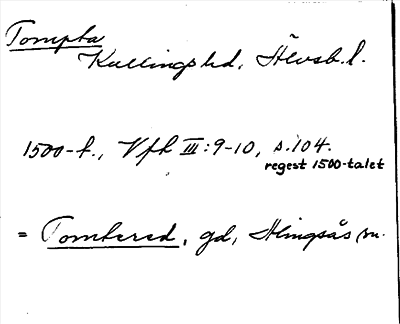 Tompta
Kullings hd, Älvsb. l.
1500-t., Vfh III:9-10, s.104.
regest 1500-talet
= Tombered, gd, Alingsås sn.